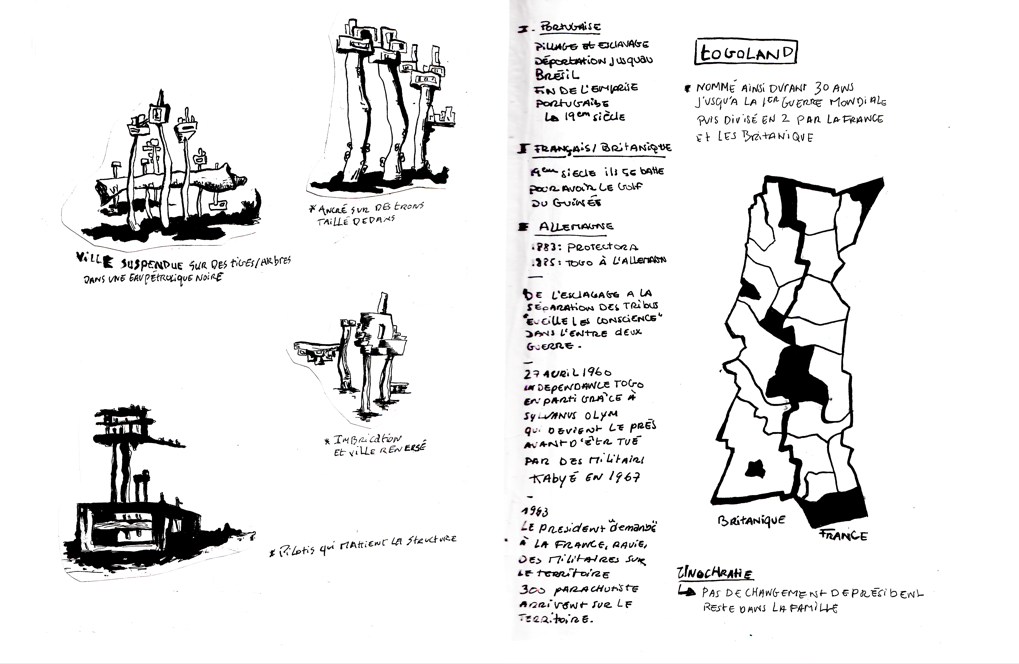 VILLE SUSPENDUE SUR DES TIGES/ARBRES
DANS UNE EAU PÉTROLIQUE NOIRE
* ANCRÉ SUR DES TRONS
TAILLÉ DEDANS
* IMBRICATION
ET VILLE RENVERSÉ
* PILOTIS QUI MATIENT LA STRUCTURE
I. PORTUGAISE
PILLAGE ET ESCLAVAGE
DÉPORTATION JUSQUAU
BRÉSIL
FIN DE L'EMPRISE
PORTUGAISE
↳ 19em SIÈCLE
I FRANÇAIS/BRITANIQUE
19em SIECLE ILS SE BATTE
POUR AVOIR LE GOLF
DU GUINÉE
ALLEMAGNE
1883: PROTECTORA
1885: TOGO À L'ALLEMAGN
—
DE L'ESCLAGAGE A LA
SÉPARATION DES TRIBUS
"EVEILLE LES CONSCIENCE"
DANS L'ENTRE DEUX
GUERRE.
—
27 AVRIL 1960
LA DEPENDANCE TOGO
EN PARTI GRÂCE À
SYLVANUS OLYM
QUI DEVIENT LE PRÉS
AVANT D'ÊTR TUÉ
PAR DES MILITAIRE
KABYÉ EN 1967
–
1963
LE PRESIDENT "DEMANDE"
À LA FRANCE, RAVIE,
DES MILITAIRES SUR
LE TERRITOIRE
300 PARACHUTISTE
ARRIVENT SUR LE
TERRITOIRE.
TOGOLAND
* NOMMÉ AINSI DURANT 30 ANS
J'USQU'A LA 1ER GUERRE MONDIALE
PUIS DIVISÉ EN 2 PAR LA FRANCE
ET LES BRITANIQUE
BRITANIQUE
FRANCE
↳ PAS DE CHANGEMENT DE PRÉSIDENT
RESTE DANS LA FAMILLE